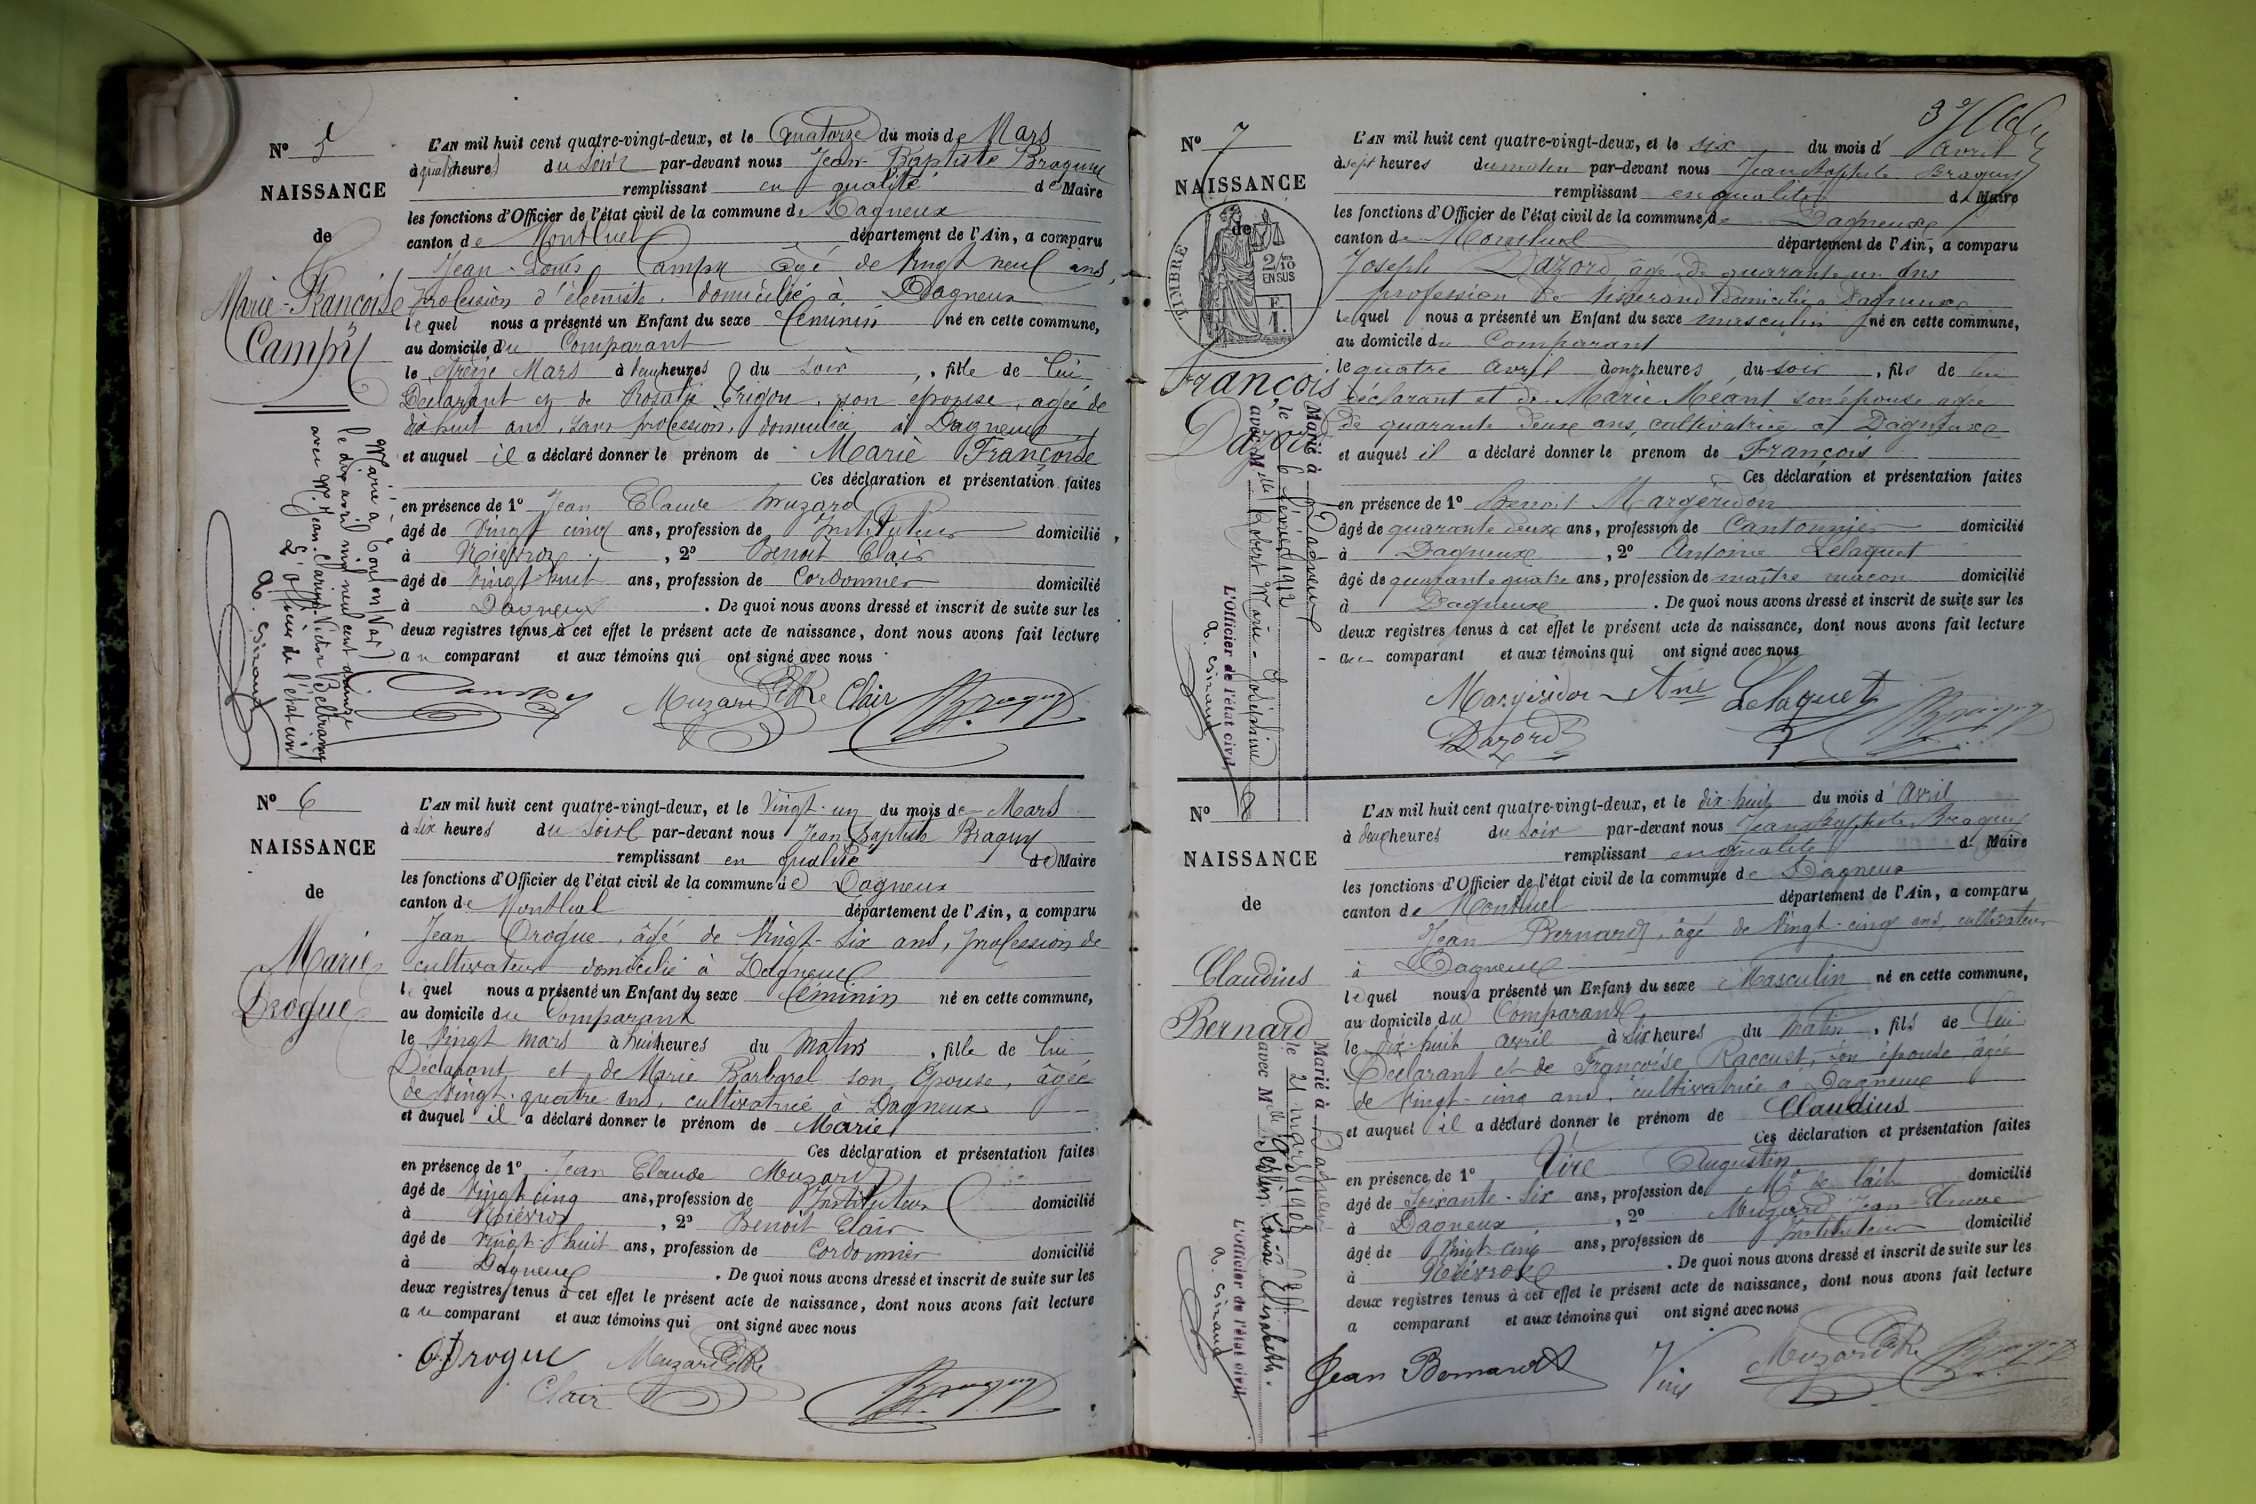 N° 5
NAISSANCE
de
Marie-Françoise
Campy
Marié à Toulon (Var)
le dix avril mil neuf cent quinze
avec Mr. Jean Victor Beltramy
L'officier de l'état civil
L'AN mil huit cent quatre-vingt-deux, et le Quatorze du mois de Mars
à quatre heures du Soir par-devant nous Jean-Baptiste Braguy
remplissant en qualité de Maire
les fonctions d'Officier de l'état civil de la commune de Dagneux
canton de Montluel département de l'Ain, a comparu
Jean-Louis Campy âgé de Vingt neuf ans,
profession d'ébeniste, domicilié à Dagneux
lequel nous a présenté un Enfant du sexe féminin né en cette commune,
au domicile du Comparant
le treize Mars à deux heures du soir, fille de lui
Déclarant et de Rosalie Trigon, son épouse, agée de
dix huit ans, sans profession, domiciliée à Dagneux
et auquel il a déclaré donner le prénom de Marie Françoise
Ces déclaration et présentation faites
en présence de 1° Jean Claude Muzard
âgé de Vingt cinq ans, profession de Instituteur domicilié
à Niévroz, 2° Benoit Clair
âgé de Vingt-huit ans, profession de Cordonnier domicilié
à Dagneux. De quoi nous avons dressé et inscrit de suite sur les
deux registres tenus à cet effet le présent acte de naissance, dont nous avons fait lecture
au comparant et aux témoins qui ont signé avec nous
Campy Muzard Clair Braguy
N° 6
NAISSANCE
de
Marie
Drogue
L'AN mil huit cent quatre-vingt-deux, et le Vingt-un du mois de Mars
à six heures du Soir par-devant nous Jean Baptiste Braguy
remplissant en qualité de Maire
les fonctions d'Officier de l'état civil de la commune de Dagneux
canton de Montluel département de l'Ain, a comparu
Jean Drogue, âgé de Vingt-six ans, profession de
cultivateur domicilié à Dagneux
lequel nous a présenté un Enfant du sexe féminin né en cette commune,
au domicile du Comparant
le Vingt mars à huit heures du Matin, fille de lui
Déclarant et de Marie Barbarel son Épouse, âgée
de Vingt-quatre ans, cultivatrice à Dagneux
et auquel il a déclaré donner le prénom de Marie
Ces déclaration et présentation faites
en présence de 1° Jean Claude Muzard
âgé de Vingt-cinq ans, profession de Instituteur domicilié
à Niévroz, 2° Benoit Clair
âgé de Vingt-huit ans, profession de Cordonnier domicilié
à Dagneux. De quoi nous avons dressé et inscrit de suite sur les
deux registres tenus à cet effet le présent acte de naissance, dont nous avons fait lecture
au comparant et aux témoins qui ont signé avec nous
Drogue Muzard
Clair Braguy
N° 7
NAISSANCE
de
TIMBRE
2/10
EN SUS
F.
1.
François
Dazord
Marié à Dagneux
le 6 février 1912
avec Mlle Robert Marie-Joséphine
L'Officier de l'état civil,
L'AN mil huit cent quatre-vingt-deux, et le six du mois d'avril
à sept heures du matin par-devant nous Jean Baptiste Braguy
remplissant en qualité de Maire
les fonctions d'Officier de l'état civil de la commune de Dagneux
canton de Montluel département de l'Ain, a comparu
Joseph Dazord, âgé de quarante un ans
profession de tisserand domicilié à Dagneux
lequel nous a présenté un Enfant du sexe masculin né en cette commune,
au domicile du Comparant
le quatre avril à onze heures du soir, fils de lui
déclarant et de Marie Méant son épouse agée
de quarante deux ans, cultivatrice à Dagneux
et auquel il a déclaré donner le prenom de François
Ces déclaration et présentation faites
en présence de 1° Benoit Margeridon
âgé de quarante deux ans, profession de Cantonnier domicilié
à Dagneux, 2° Antoine Lelaquet
âgé de quarante quatre ans, profession de maître maçon domicilié
à Dagneux. De quoi nous avons dressé et inscrit de suite sur les
deux registres tenus à cet effet le présent acte de naissance, dont nous avons fait lecture
au comparant et aux témoins qui ont signé avec nous
Margeridon Ane Lelaquet
Dazord Braguy
N° 8
NAISSANCE
de
Claudius
Bernard
Marié à Dagneux
le 21 mars 1908
avec Mlle Louise Elisabeth.
L'Officier de l'état civil,
L'AN mil huit cent quatre-vingt-deux, et le dix huit du mois d'Avril
à deux heures du soir par-devant nous Jean Baptiste Braguy
remplissant en qualité de Maire
les fonctions d'Officier de l'état civil de la commune de Dagneux
canton de Montluel département de l'Ain, a comparu
Jean Bernard, âgé de Vingt-cinq ans, cultivateur
à Dagneux
lequel nous a présenté un Enfant du sexe Masculin né en cette commune,
au domicile du Comparant
le dix-huit avril à six heures du Matin, fils de lui
Déclarant et de Françoise Raccuet, son épouse âgée
de Vingt-cinq ans, cultivatrice à Dagneux
et auquel il a déclaré donner le prénom de Claudius
Ces déclaration et présentation faites
en présence de 1° Viré Augustin
âgé de Soixante-six ans, profession de Md de lait domicilié
à Dagneux, 2° Muzard Jean Claude
âgé de Vingt-cinq ans, profession de Instituteur domicilié
à Niévroz. De quoi nous avons dressé et inscrit de suite sur les
deux registres tenus à cet effet le présent acte de naissance, dont nous avons fait lecture
a comparant et aux témoins qui ont signé avec nous
Jean Bernard Muzard Braguy